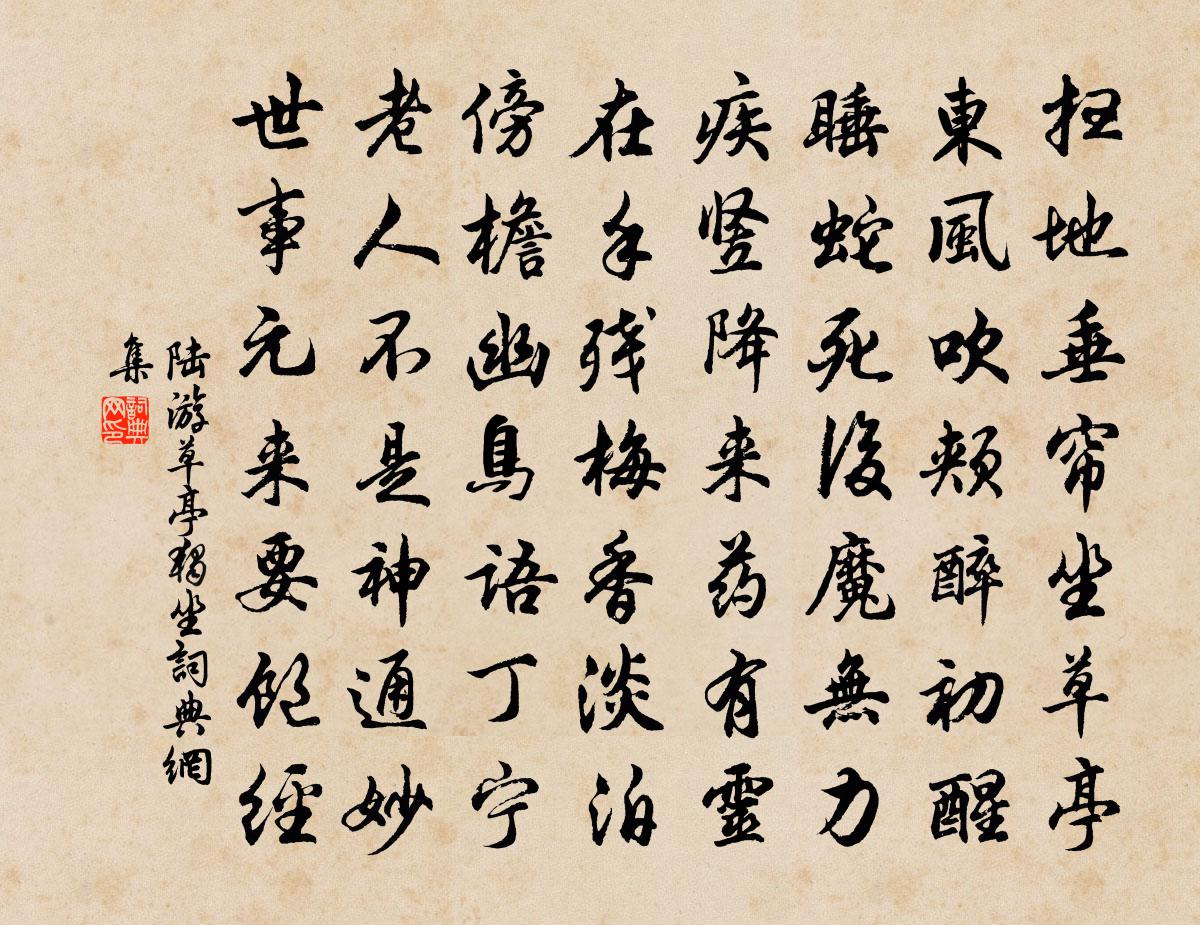 扫地垂帘坐草亭
東風吹颊醉初醒
睡蛇死後魔無力
疾竖降来药有靈
在手残梅香淡泊
傍檐幽鳥語丁宁
老人不是神通妙
世事元来要饱經
陆游草亭獨坐詞典網
集
詞典网印